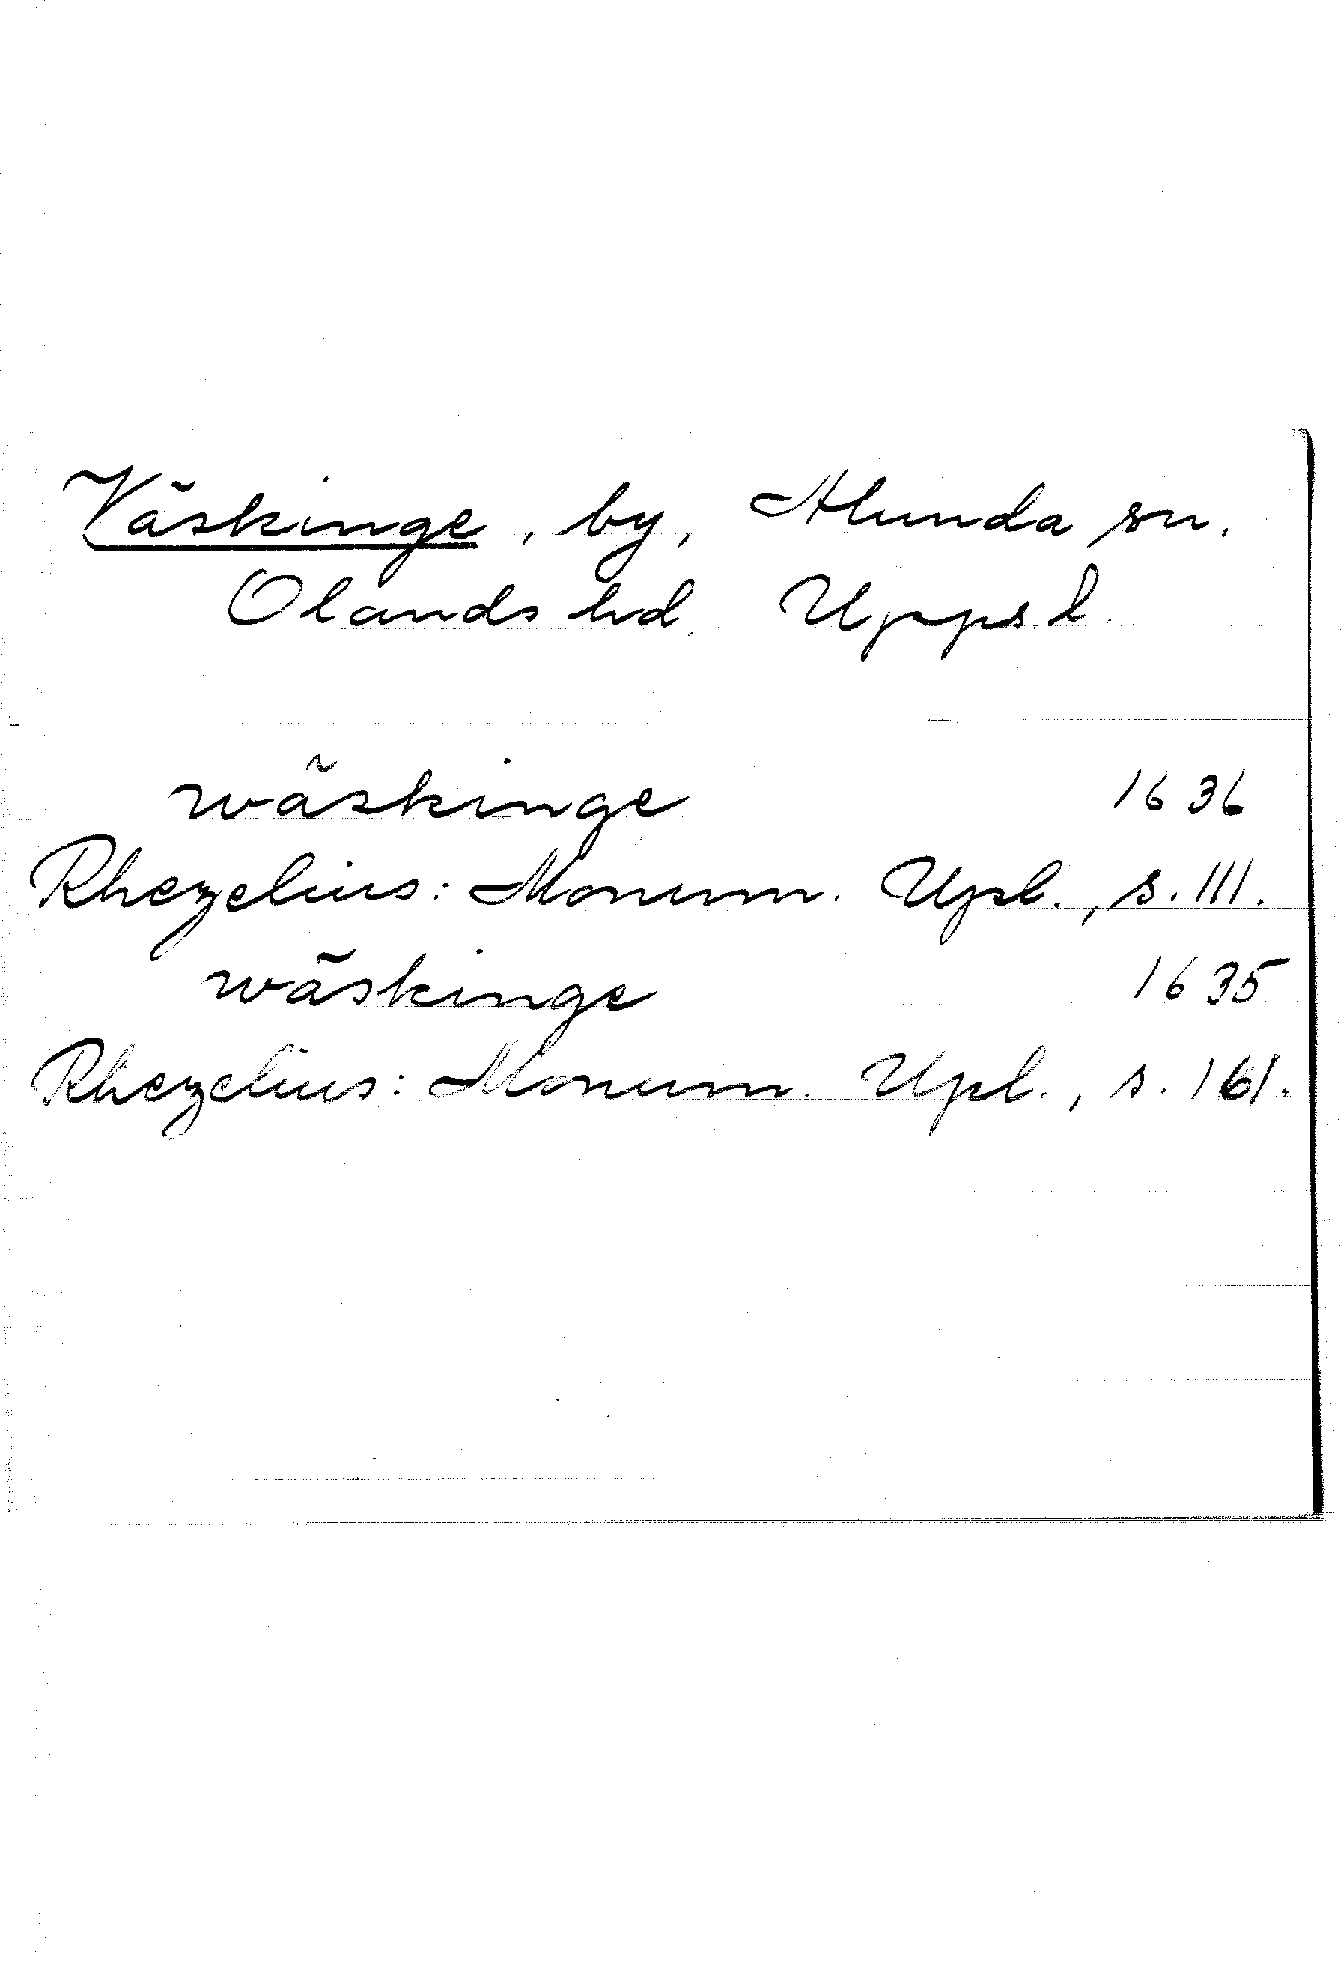 Väskinge, by, Alunda sn.
Olands hd. Uppsl.
wäskinge 1636
Rhezelius: Monum. Upl., s. 111.
wäskinge 1635
Rhezelius: Monum. Upl., s. 161.